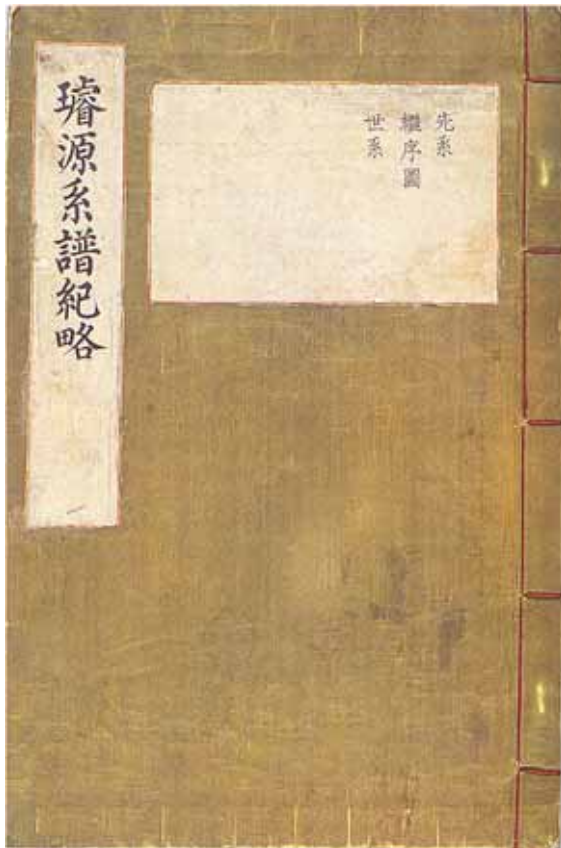 先系
繼序圖
世系
璿源系譜紀略
一